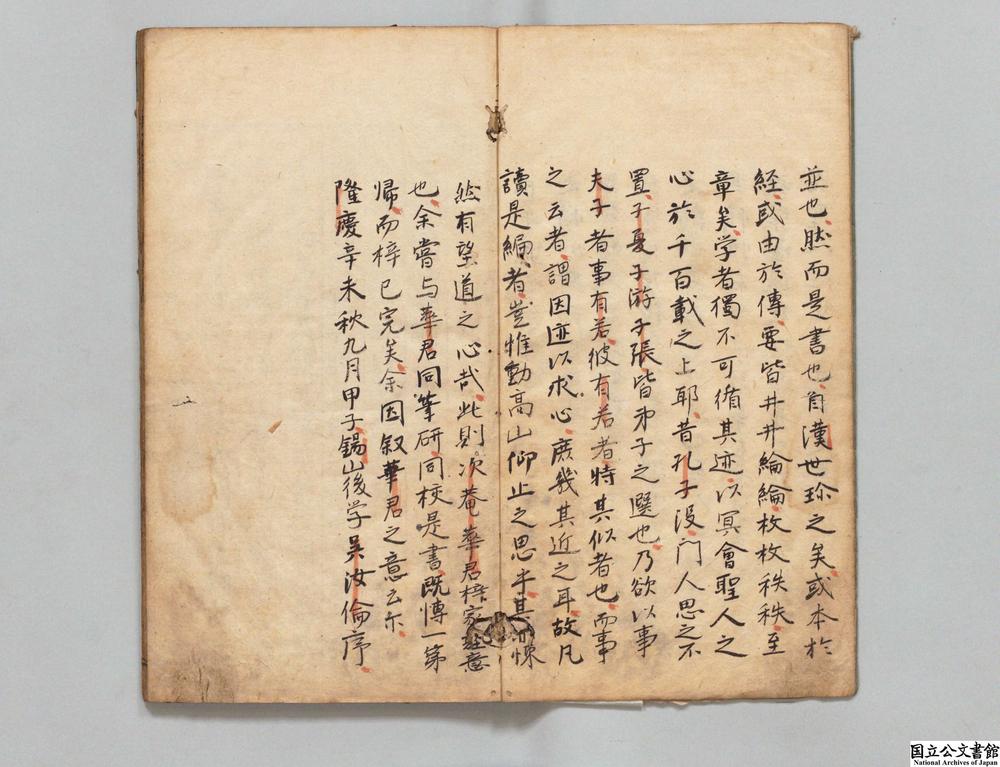 並也然而是書也自漢世珍之矣或本於
経或由於傳要皆井井綸綸枚枚秩秩至
章矣学者獨不可循其迹以冥會聖人之
心於千百載之上耶昔孔子没門人思之不
置子夏子游子張皆弟子之選也乃欲以事
夫子者事有若彼有若者特其似者也而事
之云者謂因迹以求心庶幾其近之耳故凡
讀是編者豈惟動高山仰止之思乎其亦悚
然有望道之心哉此則次菴華君梓家語意
也余嘗与華君同筆研同校是書既愽一第
帰而梓已完矣余因叙華君之意云尓
隆慶辛未秋九月甲子錫山後学吴汝倫序
国立公文書館
National Archives of Japan